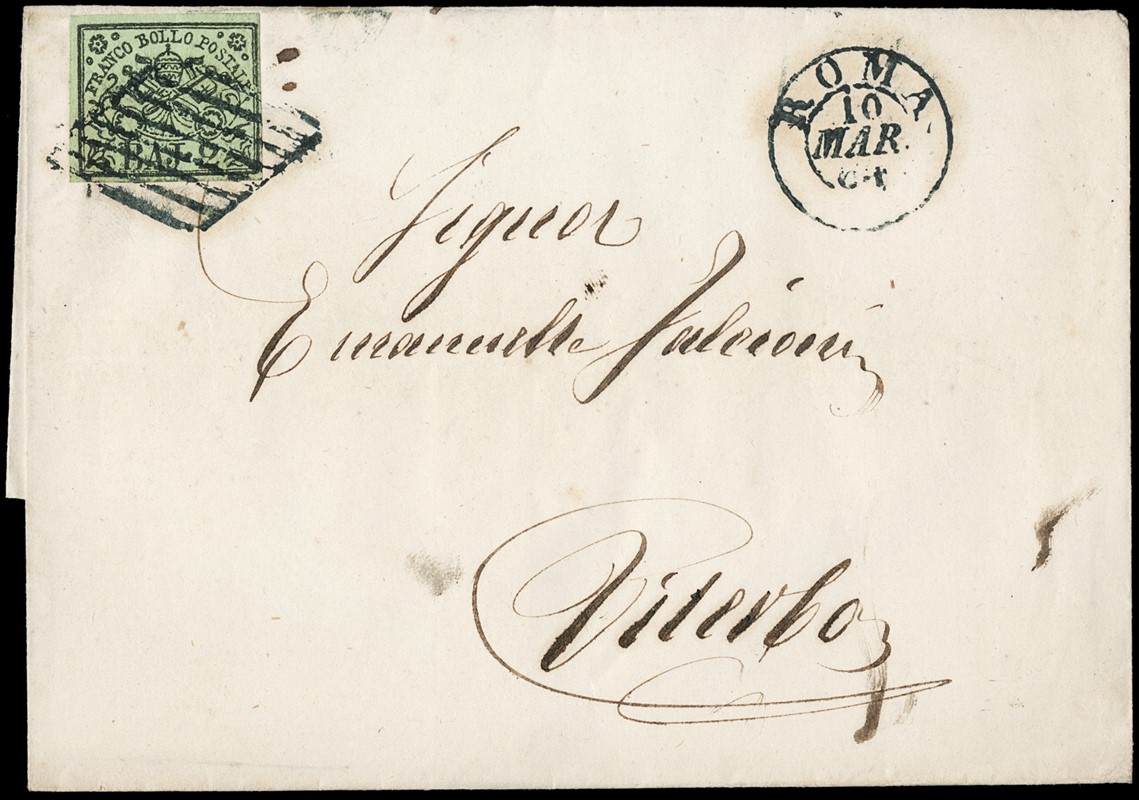 FRANCO BOLLO POSTALE
BAJ 2
ROMA
10
MAR.
64
Signor
Emanuelle Falcioni
Viterbo